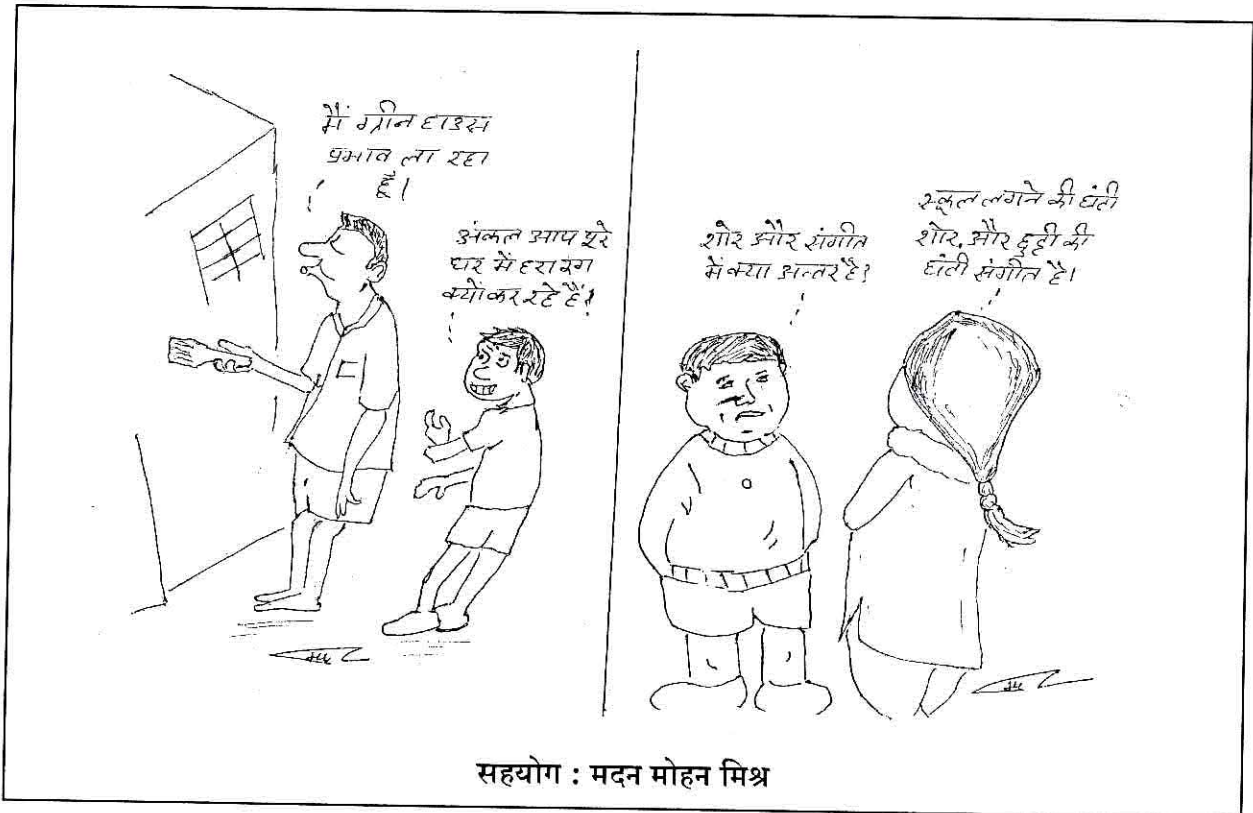 मैं ग्रीन हाउस
प्रभाव ला रहा
हूँ।
अंकल आप पूरे
घर में हरा रंग
क्यों कर रहे हैं?
शोर और संगीत
में क्या अन्तर है?
स्कूल लगने की घंटी
शोर, और छुट्टी की
घंटी संगीत है।
सहयोग : मदन मोहन मिश्र